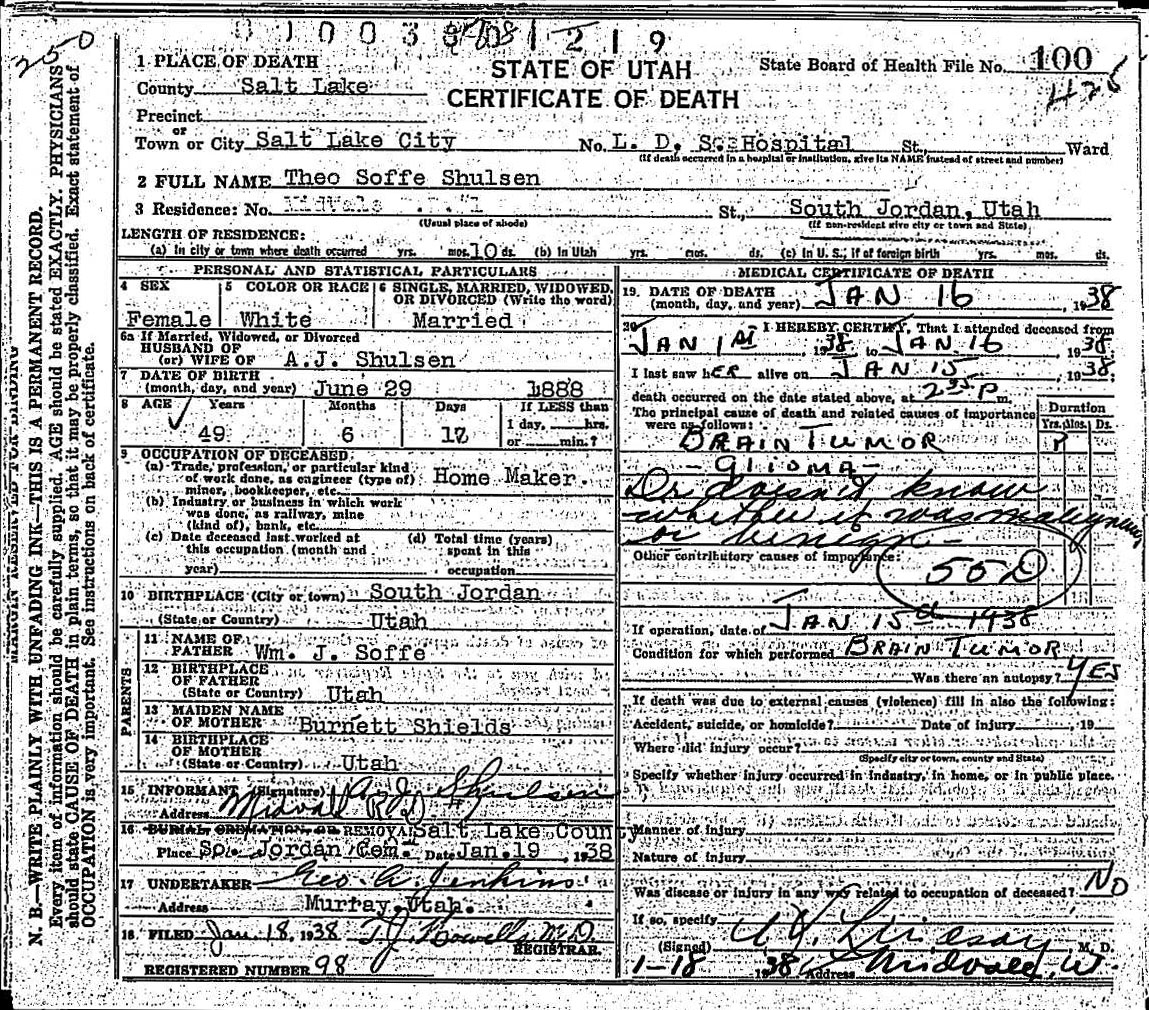 250
STATE OF UTAH
CERTIFICATE OF DEATH
State Board of Health File No. 100
426
1 PLACE OF DEATH
County Salt Lake
Precinct
or
Town or City Salt Lake City No. L. D. S. Hospital St., Ward
(If death occurred in a hospital or institution, give its NAME instead of street and number)
2 FULL NAME Theo Soffe Shulsen
3 Residence: No. Midvale St., South Jordan, Utah
(Usual place of abode) (If non-resident give city or town and State)
LENGTH OF RESIDENCE:
(a) In city or town where death occurred yrs. mos. 10 ds. (b) In Utah yrs. mos. ds. (c) In U. S., if of foreign birth yrs. mos. ds.
PERSONAL AND STATISTICAL PARTICULARS
4 SEX 5 COLOR OR RACE 6 SINGLE, MARRIED, WIDOWED,
OR DIVORCED (Write the word)
Female White Married
6a If Married, Widowed, or Divorced
HUSBAND OF
(or) WIFE OF A.J. Shulsen
7 DATE OF BIRTH
(month, day, and year) June 29 1888
8 AGE Years Months Days If LESS than
1 day, hrs.
49 6 17 or min.?
9 OCCUPATION OF DECEASED:
(a) Trade, profession, or particular kind
of work done, as engineer (type of)
miner, bookkeeper, etc. Home Maker.
(b) Industry or business in which work
was done, as railway, mine
(kind of), bank, etc.
(c) Date deceased last worked at
this occupation (month and
year)
(d) Total time (years)
spent in this
occupation
10 BIRTHPLACE (City or town) South Jordan
(State or Country) Utah
PARENTS
11 NAME OF
FATHER Wm. J. Soffe
12 BIRTHPLACE
OF FATHER
(State or Country) Utah
13 MAIDEN NAME
OF MOTHER Burnett Shields
14 BIRTHPLACE
OF MOTHER
(State or Country) Utah
15 INFORMANT (Signature) A. J. Shulsen
Address Midvale R.D
16 BURIAL, CREMATION, OR REMOVAL Salt Lake County
Place So. Jordan Cem. Date Jan. 19, 1938
17 UNDERTAKER Geo. A. Jenkins
Address Murray, Utah.
18 FILED Jan. 18, 1938 T. J. Howells M.D
REGISTRAR.
REGISTERED NUMBER 98
MEDICAL CERTIFICATE OF DEATH
19. DATE OF DEATH
(month, day, and year) JAN 16, 1938
20 I HEREBY CERTIFY, That I attended deceased from
JAN 1st, 1938 to JAN 16 1938
I last saw hER alive on JAN 15, 1938;
death occurred on the date stated above, at 2 35 P m.
The principal cause of death and related causes of importance
were as follows:
Duration
Yrs. Mos. Ds.
BRAIN TUMOR
- GLIOMA -
Dr doesn't know
whether it was malignancy
or benign -
Other contributory causes of importance:
55D
If operation, date of JAN 15th 1938
Condition for which performed BRAIN TUMOR
Was there an autopsy? YES
If death was due to external causes (violence) fill in also the following:
Accident, suicide, or homicide? Date of injury , 19
Where did injury occur?
(Specify city or town, county and State)
Specify whether injury occurred in industry, in home, or in public place.
Manner of injury
Nature of injury
Was disease or injury in any way related to occupation of deceased? NO
If so, specify
(Signed) M. D.
1-18 1938 Address Midvale, Ut.
MARGIN RESERVED FOR BINDING
N. B.—WRITE PLAINLY WITH UNFADING INK—THIS IS A PERMANENT RECORD.
Every item of information should be carefully supplied. AGE should be stated EXACTLY. PHYSICIANS
should state CAUSE OF DEATH in plain terms, so that it may be properly classified. Exact statement of
OCCUPATION is very important. See instructions on back of certificate.